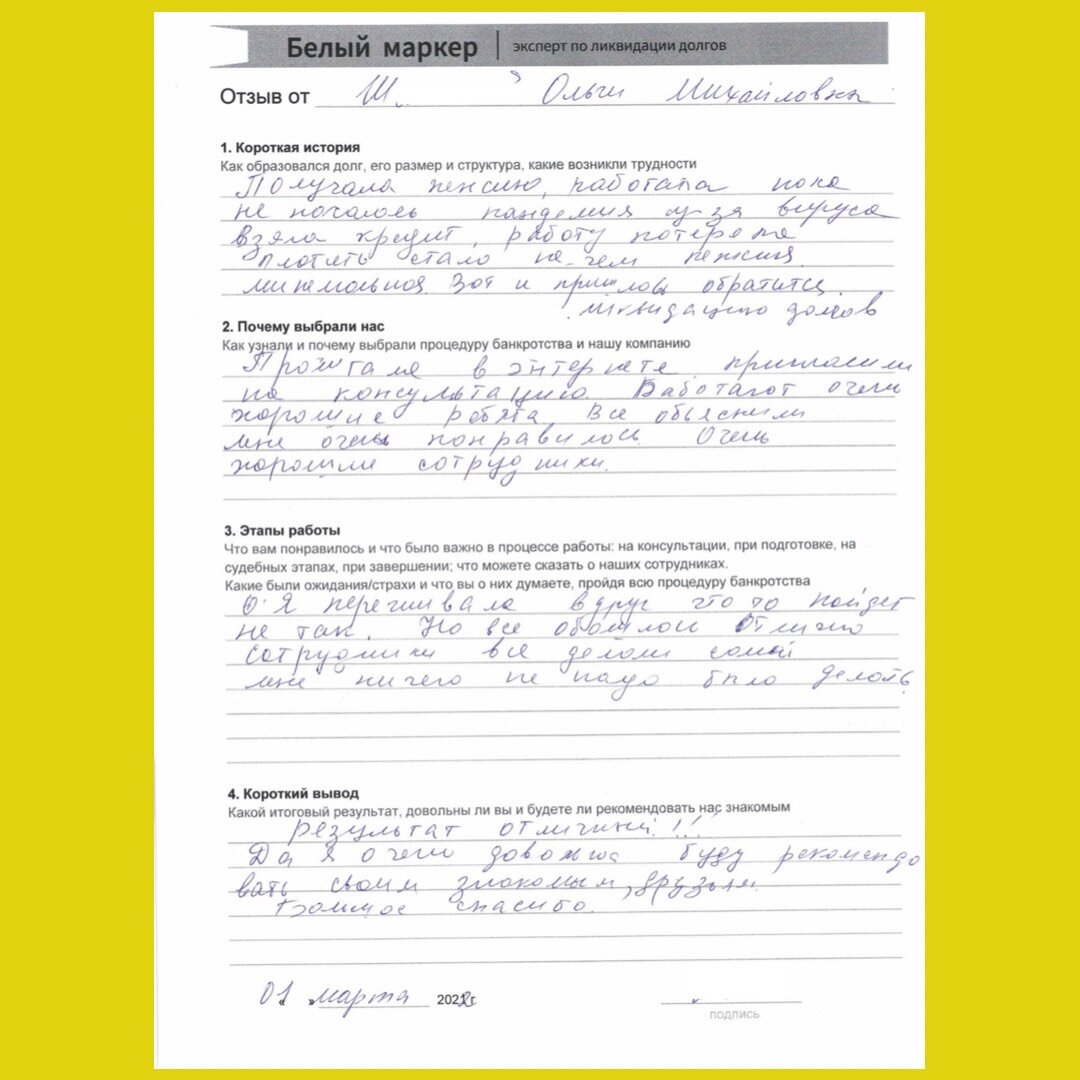 Белый маркер | эксперт по ликвидации долгов
Отзыв от Ш. Ольги Михайловны
1. Короткая история
Как образовался долг, его размер и структура, какие возникли трудности
Получала пенсию, работала пока
не началось пандемия из-за вируса
взяла кредит, работу потеряла
платить стало не-чем пенсия
минемальная. Вот и пришлось обратится
ликвидацию долгов
2. Почему выбрали нас
Как узнали и почему выбрали процедуру банкротства и нашу компанию
Прочитала в энтернете пригласили
на консультацию. Работают очень
хорошие ребята. Все обьяснили
мне очень понравилось. Очень
хорошие сотрудники.
3. Этапы работы
Что вам понравилось и что было важно в процессе работы: на консультации, при подготовке, на
судебных этапах, при завершении; что можете сказать о наших сотрудниках.
Какие были ожидания/страхи и что вы о них думаете, пройдя всю процедуру банкротства
Я переживала вдруг что то пойдет
не так. Но все обошлось Отлично
сотрудники все делали сами
мне ничего не надо было делать.
4. Короткий вывод
Какой итоговый результат, довольны ли вы и будете ли рекомендовать нас знакомым
результат отличный!!!
Да я очень довольна буду рекомендо
вать своим знакомым, друзьям.
Большое спасибо.
« 01 » марта 2022 г.
подпись